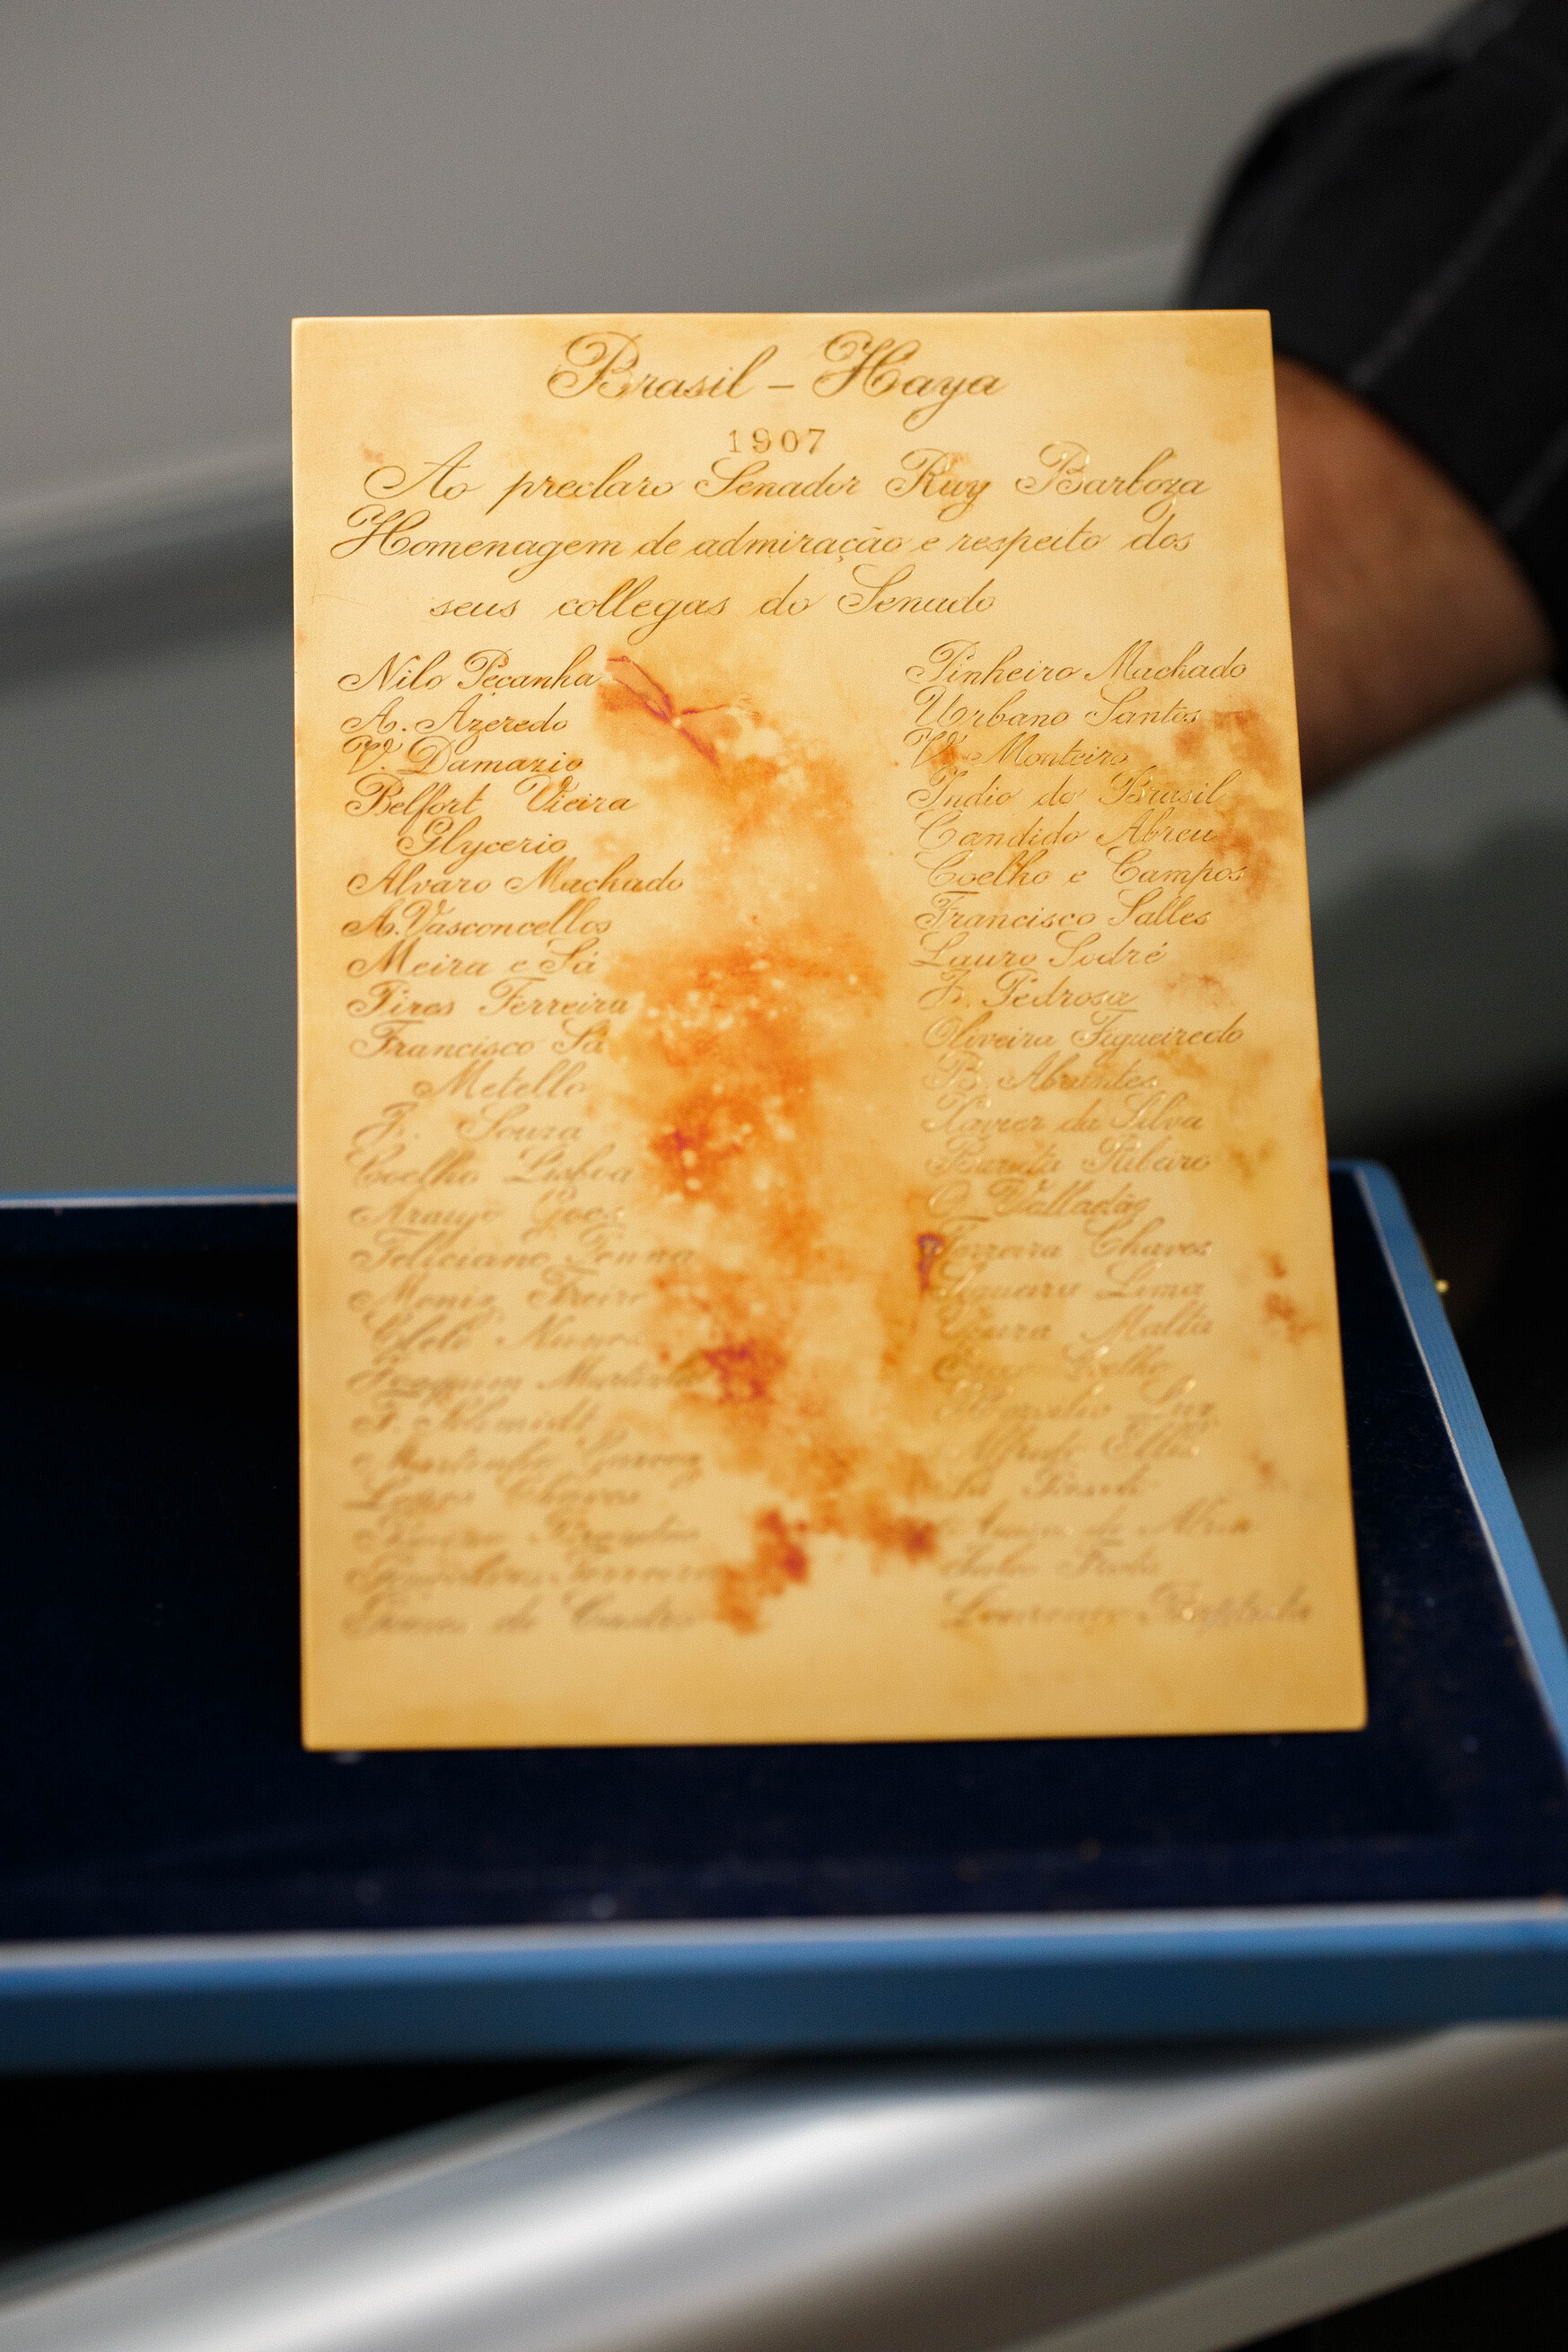 Brasil – Haya
1907
Ao preclaro Senador Ruy Barboza
Homenagem de admiração e respeito dos
seus collegas do Senado
Nilo Peçanha
A. Azeredo
V. Damazio
Belfort Vieira
Glycerio
Alvaro Machado
A. Vasconcellos
Meira e Sá
Pires Ferreira
Francisco Sá
Metello
J. Souza
Coelho Lisboa
Araujo Goes
Feliciano Penna
Moniz Freire
Cleto Nunes
Joaquim Murtinho
F. Schmidt
Lopes Chaves
Gomes de Castro
Pinheiro Machado
Urbano Santos
V. Monteiro
Indio do Brasil
Candido Abreu
Coelho e Campos
Francisco Salles
Lauro Sodré
J. Pedrosa
Oliveira Figueiredo
B. Abrantes
Xavier da Silva
Barata Ribeiro
O. Valladão
Ferreira Chaves
Siqueira Lima
Malta
Coelho
Hercilio Luz
Alfredo Ellis
Lourenço Baptista